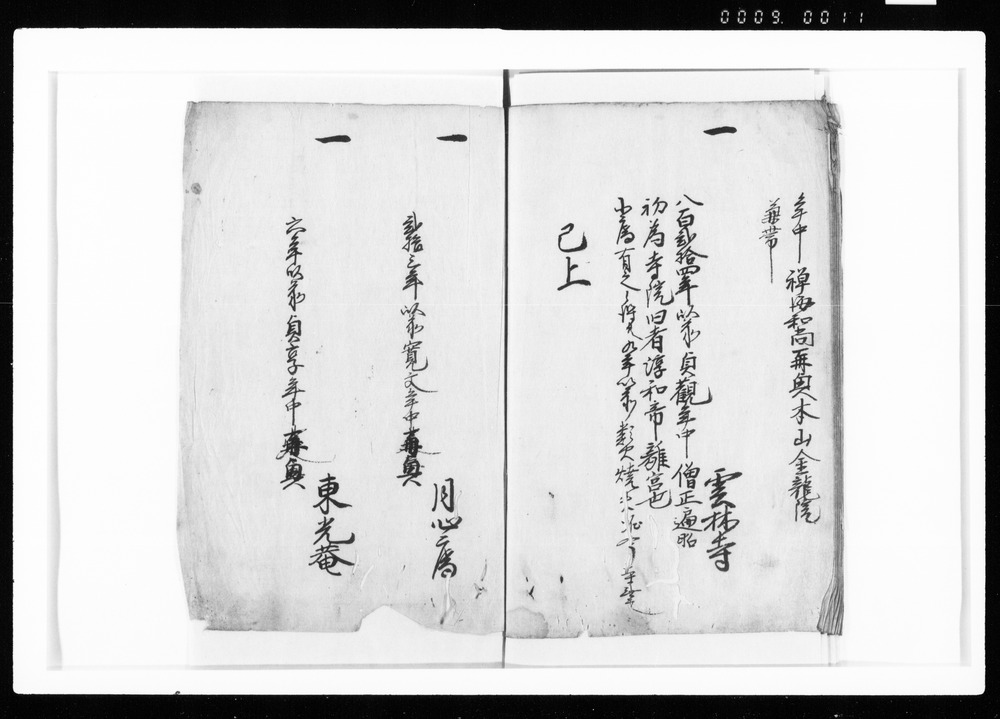 0009 0011
年中禅海和尚再興本山金龍院
兼帯
一
雲林寺
八百弐拾四年以前貞観年中僧正遍昭
初為寺院旧者淳和帝離宮也
有之 九年以前類焼
已上
一
月心庵
弐拾三年以前寛文年中再興
一
東光菴
六年以前貞享年中再興